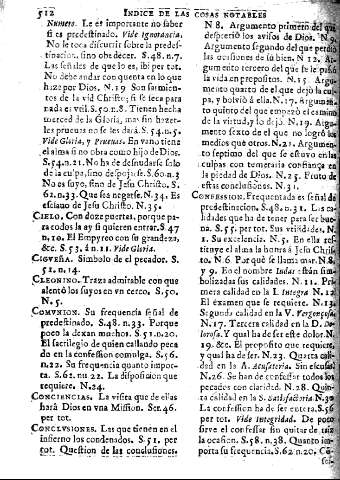 512 INDICE DE LAS COSAS NOTABLES
Numero. Le es importante no saber
si es predestinado. Vide Ignorancia.
No le toca discurrir sobre la predes-
tinacion, sino obedecer. S.48. n.7.
Las señales de que lo es, ibi per tot.
No debe andar con quenta en lo que
haze por Dios, N.19 Son sarmien-
tos de la vid Christo; si se seca para
nada es util. S.50. n.8. Tienen hecha
merced de la Gloria, mas sin hazer-
les pruevas no se les dará. S.54. n.5.
Vide Gloria, y Pruevas. En vano tiene
el alma si no obra como hijo de Dios.
S.54. n.21. No ha de desnudarse solo
de la culpa, sino despojarse. S.60. n.3
No es suyo, sino de Jesu Christo. S.
62. n.33. Que sea negarse. N.34. Es
esclavo de Jesu Christo. N.35.
CIELO, Con doze puertas, porque pa-
ra todos la ay si quieren entrar. S.47
n.10. El Empyreo con su grandeza,
&c. S.53. á n.11. Vide Gloria.
CIGUEÑA. Simbolo de el pecador. S.
52. n.14.
CLEONINO. Treza admirable con que
alentó los suyos en un cerco. S.50.
N.5.
COMUNION. Su frequencia señal de
predestinado. S.48. n.33. Porque
possee la dexan muchos. S.51. n.20.
El sacrilegio de quien callando peca
do en la confession comulga. S.56.
n.22. Su frequencia quanto impor-
ta. S.62. nu 22. La disposicion que
requiere. N.24.
CONCIENCIAS. La visita que de ellas
hará Dios en una Mission. Ser.46.
per tot.
CONCLUSIONES. Las que tienen en el
infierno los condenados. S.51. per
tot. Question de las conclusiones.
N 8. Argumento primero del que
despreció los avisos de Dios. N.9.
Argumento segundo del que perdió
las ocasiones de su bien. N 12. Ar-
gumento tercero del que se le passó
la vida en propositos. N 15 Argu-
mento quarto de el que dejó la cul-
pa, y bolvió á ella. N.17. Argumen-
to quinto del que empezó el camino
de la virtud, y lo dejó. N.19. Argu-
mento sexto de el que no logró los
medios que otros. N.21. Argumen-
to septimo del que se estuvo en las
culpas con temeraria confiança en
la piedad de Dios. N.25. Fruto de
estas conclusiones. N.31.
CONFESSION. Frequentada es señal de
predestinacion. S.48. n.31. Las ca-
lidades que ha de tener para ser bue-
na. S.55. per tot. Sus utilidades. N.
1. Su excelencia. N.5. En ella res-
tituye el alma la honra á Jesu Christ
to. N 6. Por qué se llama mar. N.8
y 9. En el nombre Iudas están sim-
bolizadas sus calidades. N.11. Pri-
mera calidad en la I. Integra N.12
El examen que se requiere. N.13.
Segunda calidad en la V. Vergonçosa
N.17. Tercera calidad en la D. Do-
lorosa. Y qual ha de ser este dolor. N.
19. &c. El proposito que requiere,
y qual ha de ser. N.23. Quarta cali-
dad en la A. Acusatoria. Sin escusas
N.26. Se han de confessar todos los
pecados con claridad. N.28. Quin-
ta calidad en la S. Satisfactoria. N.30
La confession ha de ser entera. S.56
per tot. Vide Integridad. De poco
sirve el confessar sin quitar de raiz
la ocasion. S.58. n.38. Quanto im-
porta su frequencia. S.62 n.20. Có